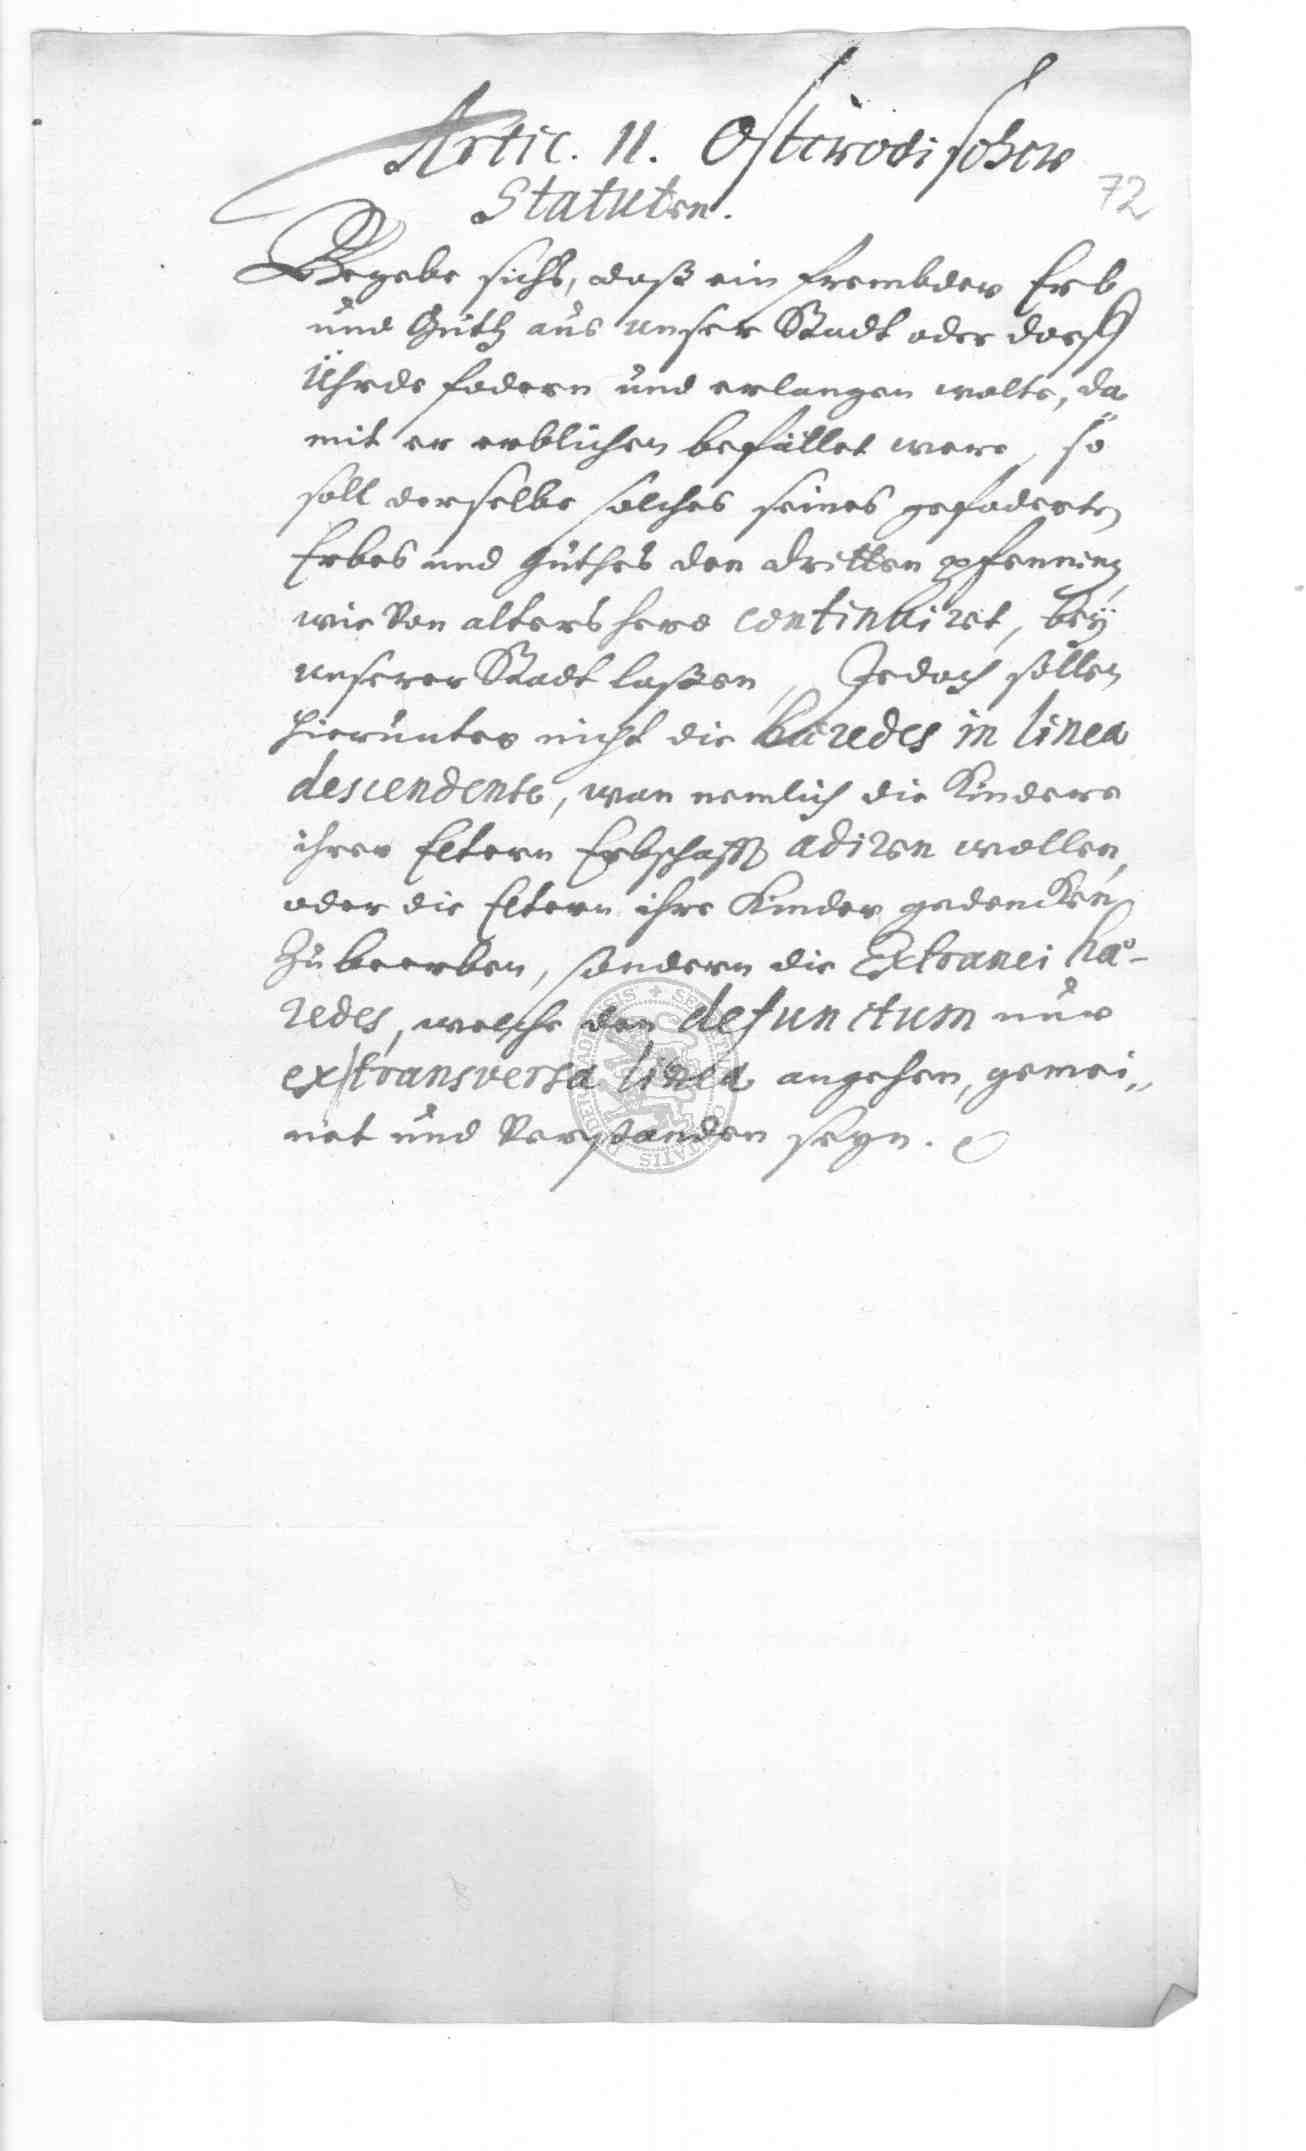 Artic. 11. Osterodischer
Statuten.
72
Begebe sichs, daß ein frembder Erb
und Guth aus unser Stadt oder dorff
Ührde fodern und erlangen wolte, da
mit er erblichen befället were, so
soll derselbe solches seines gefoderten
Erbes und Guthes den dritten pfenning
wie von alters hero continuiret, bey
unserer Stadt laßen, Jedoch sollen
hierunter nicht die hæredes in linea
descendente, wan nemlich die Kindere
ihrer Eltern Erbschafft adiren wollen,
oder die Eltern ihre Kinder gedencken
Zu beerben, sondern die Extranei hæ-
redes, welche den defunctum nur
ex transversa linea angehen, gemei„
net und verstanden seyn.